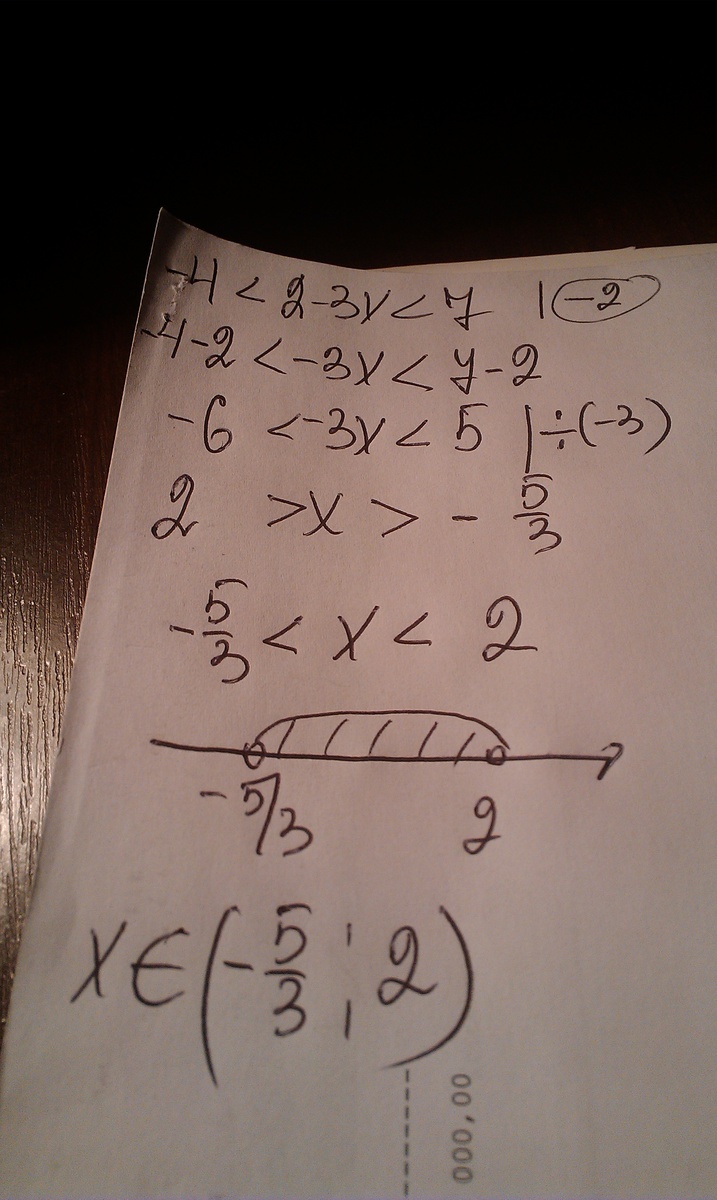 -4 < 2-3x < 7 | -2
-4-2 < -3x < 7-2
-6 < -3x < 5 | ÷(-3)
2 > x > - 5/3
-5/3 < x < 2
- 5/3 2
x ∈ (- 5/3 ; 2)
00,000